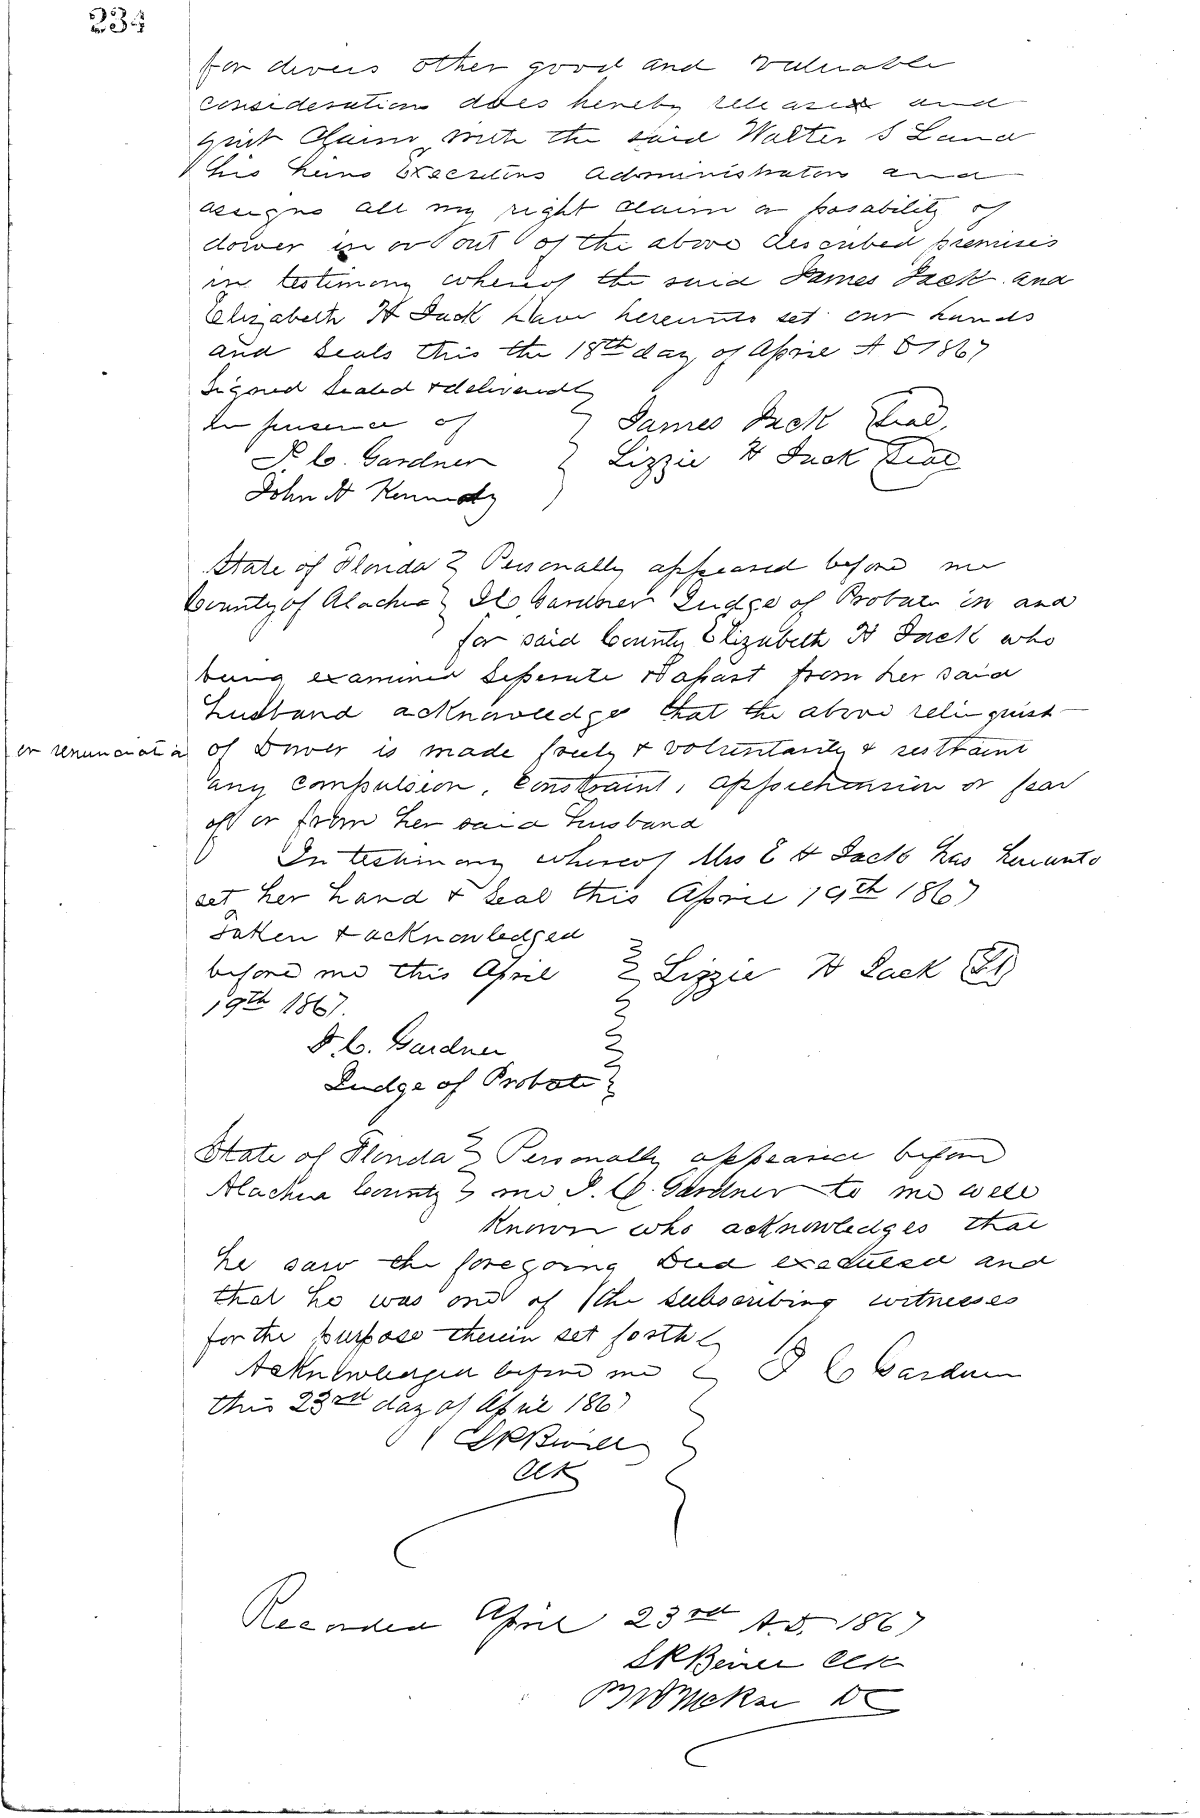 234
for divers other good and valuable
consideration does hereby release and
quit Claim with the said Walter S Land
his heirs Executors administrators and
assigns all my right claim or posability of
dower in or out of the above described premises
in testimony whereof the said James Jack and
Elizabeth H Jack have hereunto set our hands
and seals this the 18th day of April A D 1867
Signed Sealed & delivered
in presence of James Jack Seal
J. C. Gardner Lizzie H Jack Seal
John H Kennedy
State of Florida Personally appeared before me
County of Alachua Gardner Judge of Probate in and
for said County Elizabeth H Jack who
being examined Seperate & apart from her said
husband acknowledge that the above relinquish
or renunciation of Dower is made freely & voluntarily & restraint
any compulsion, constraint, apprehension or fear
of or from her said husband
In testimony whereof Mrs E H Jack has hereunto
set her hand & Seal this April 19th 1867
Taken & acknowledged
before me this April Lizzie H Jack
19th 1867.
J. C. Gardner
Judge of Probate
State of Florida Personally appeared before
Alachua County me J. C. Gardner to me well
Known who acknowledges that
he saw the foregoing Deed executed and
that he was one of the subscribing witnesses
for the purpose therein set forth
Acknowledged before me J C Gardner
this 23rd day of April 1867
Clk
Recorded April 23rd A.D. 1867
Clk
DC